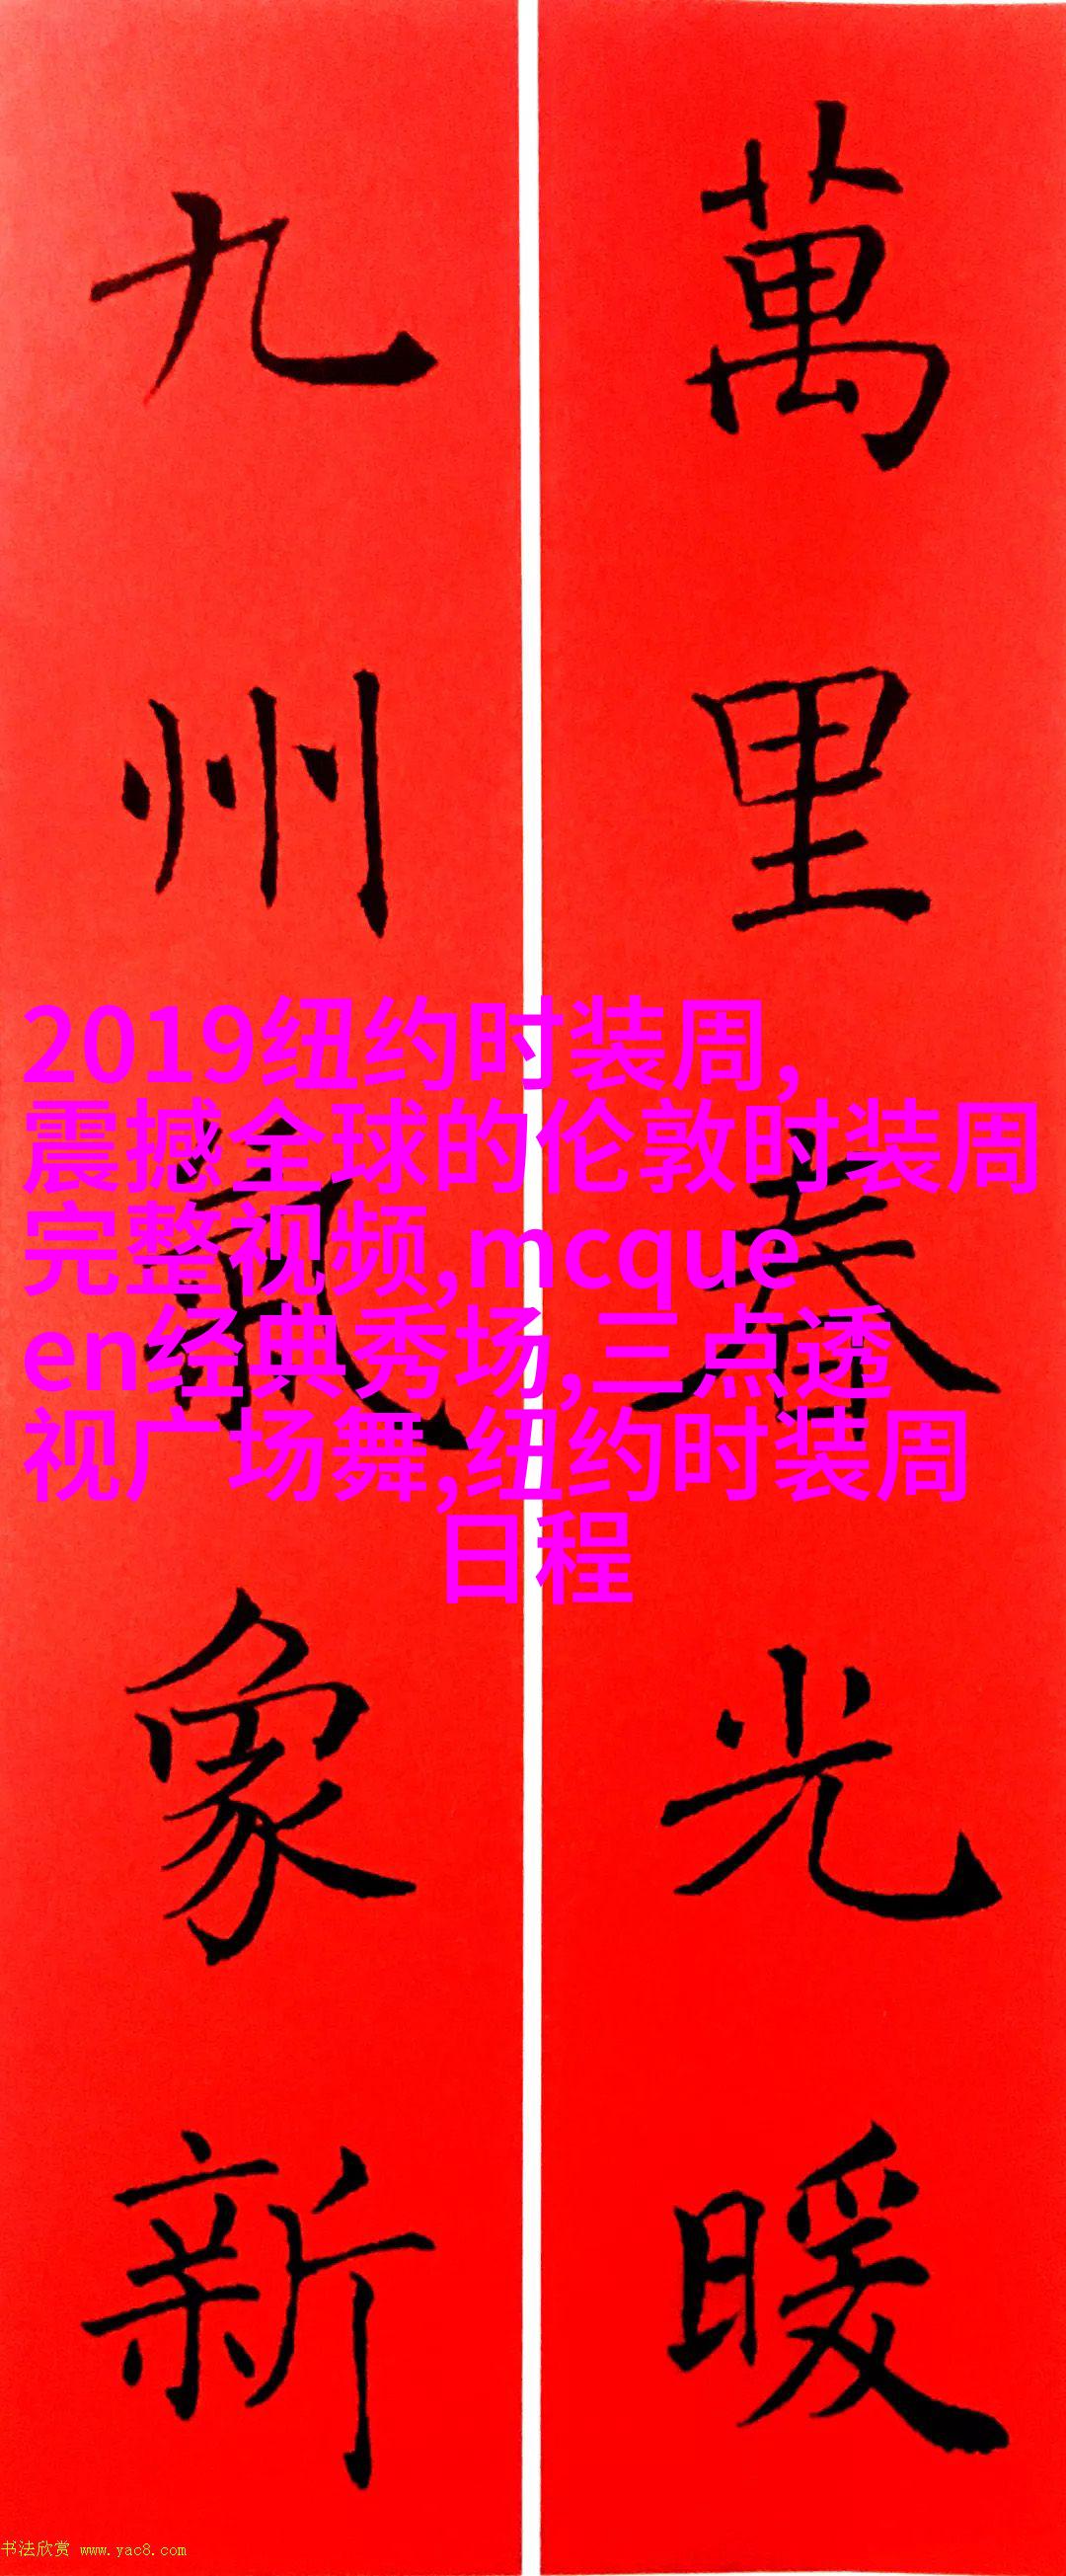 萬里春光暖
九州氣象新
2019纽约时装周,
震撼全球的伦敦时装周
完整视频,mcque
en经典秀场,三点透
视广场舞,纽约时装周
日程
书法欣赏 www.yac8.com